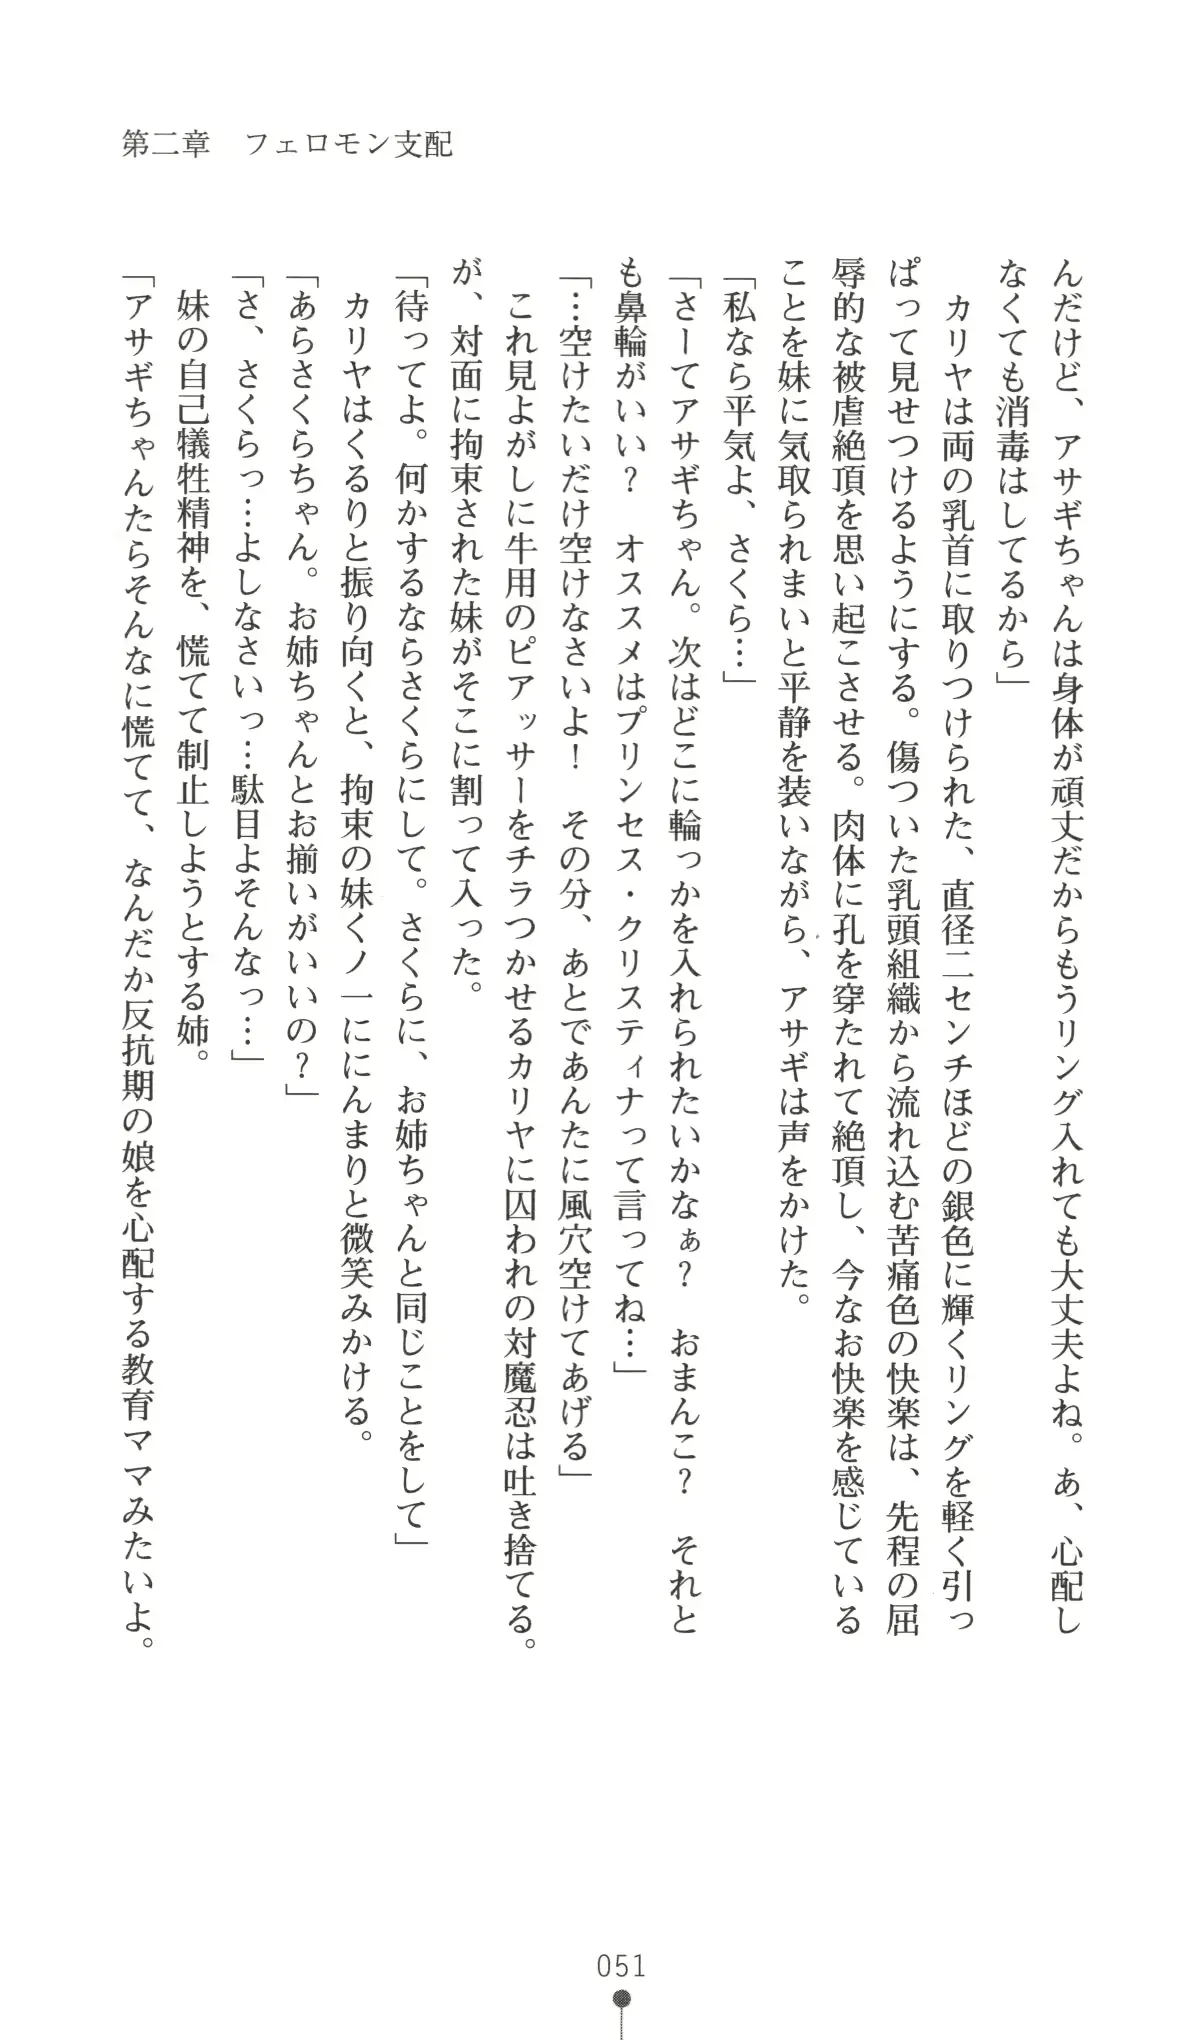 第二章　フェロモン支配
んだけど、アサギちゃんは身体が頑丈だからもうリング入れても大丈夫よね。あ、心配し
なくても消毒はしてるから」
　カリヤは両の乳首に取りつけられた、直径二センチほどの銀色に輝くリングを軽く引っ
ぱって見せつけるようにする。傷ついた乳頭組織から流れ込む苦痛色の快楽は、先程の屈
辱的な被虐絶頂を思い起こさせる。肉体に孔を穿たれて絶頂し、今なお快楽を感じている
ことを妹に気取られまいと平静を装いながら、アサギは声をかけた。
「私なら平気よ、さくら…」
「さーてアサギちゃん。次はどこに輪っかを入れられたいかなぁ？　おまんこ？　それと
も鼻輪がいい？　オススメはプリンセス・クリスティナって言ってね…」
「…空けたいだけ空けなさいよ！　その分、あとであんたに風穴空けてあげる」
　これ見よがしに牛用のピアッサーをチラつかせるカリヤに囚われの対魔忍は吐き捨てる。
が、対面に拘束された妹がそこに割って入った。
「待ってよ。何かするならさくらにして。さくらに、お姉ちゃんと同じことをして」
　カリヤはくるりと振り向くと、拘束の妹くノ一ににんまりと微笑みかける。
「あらさくらちゃん。お姉ちゃんとお揃いがいいの？」
「さ、さくらっ…よしなさいっ…駄目よそんなっ…」
　妹の自己犠牲精神を、慌てて制止しようとする姉。
「アサギちゃんたらそんなに慌てて、なんだか反抗期の娘を心配する教育ママみたいよ。
051